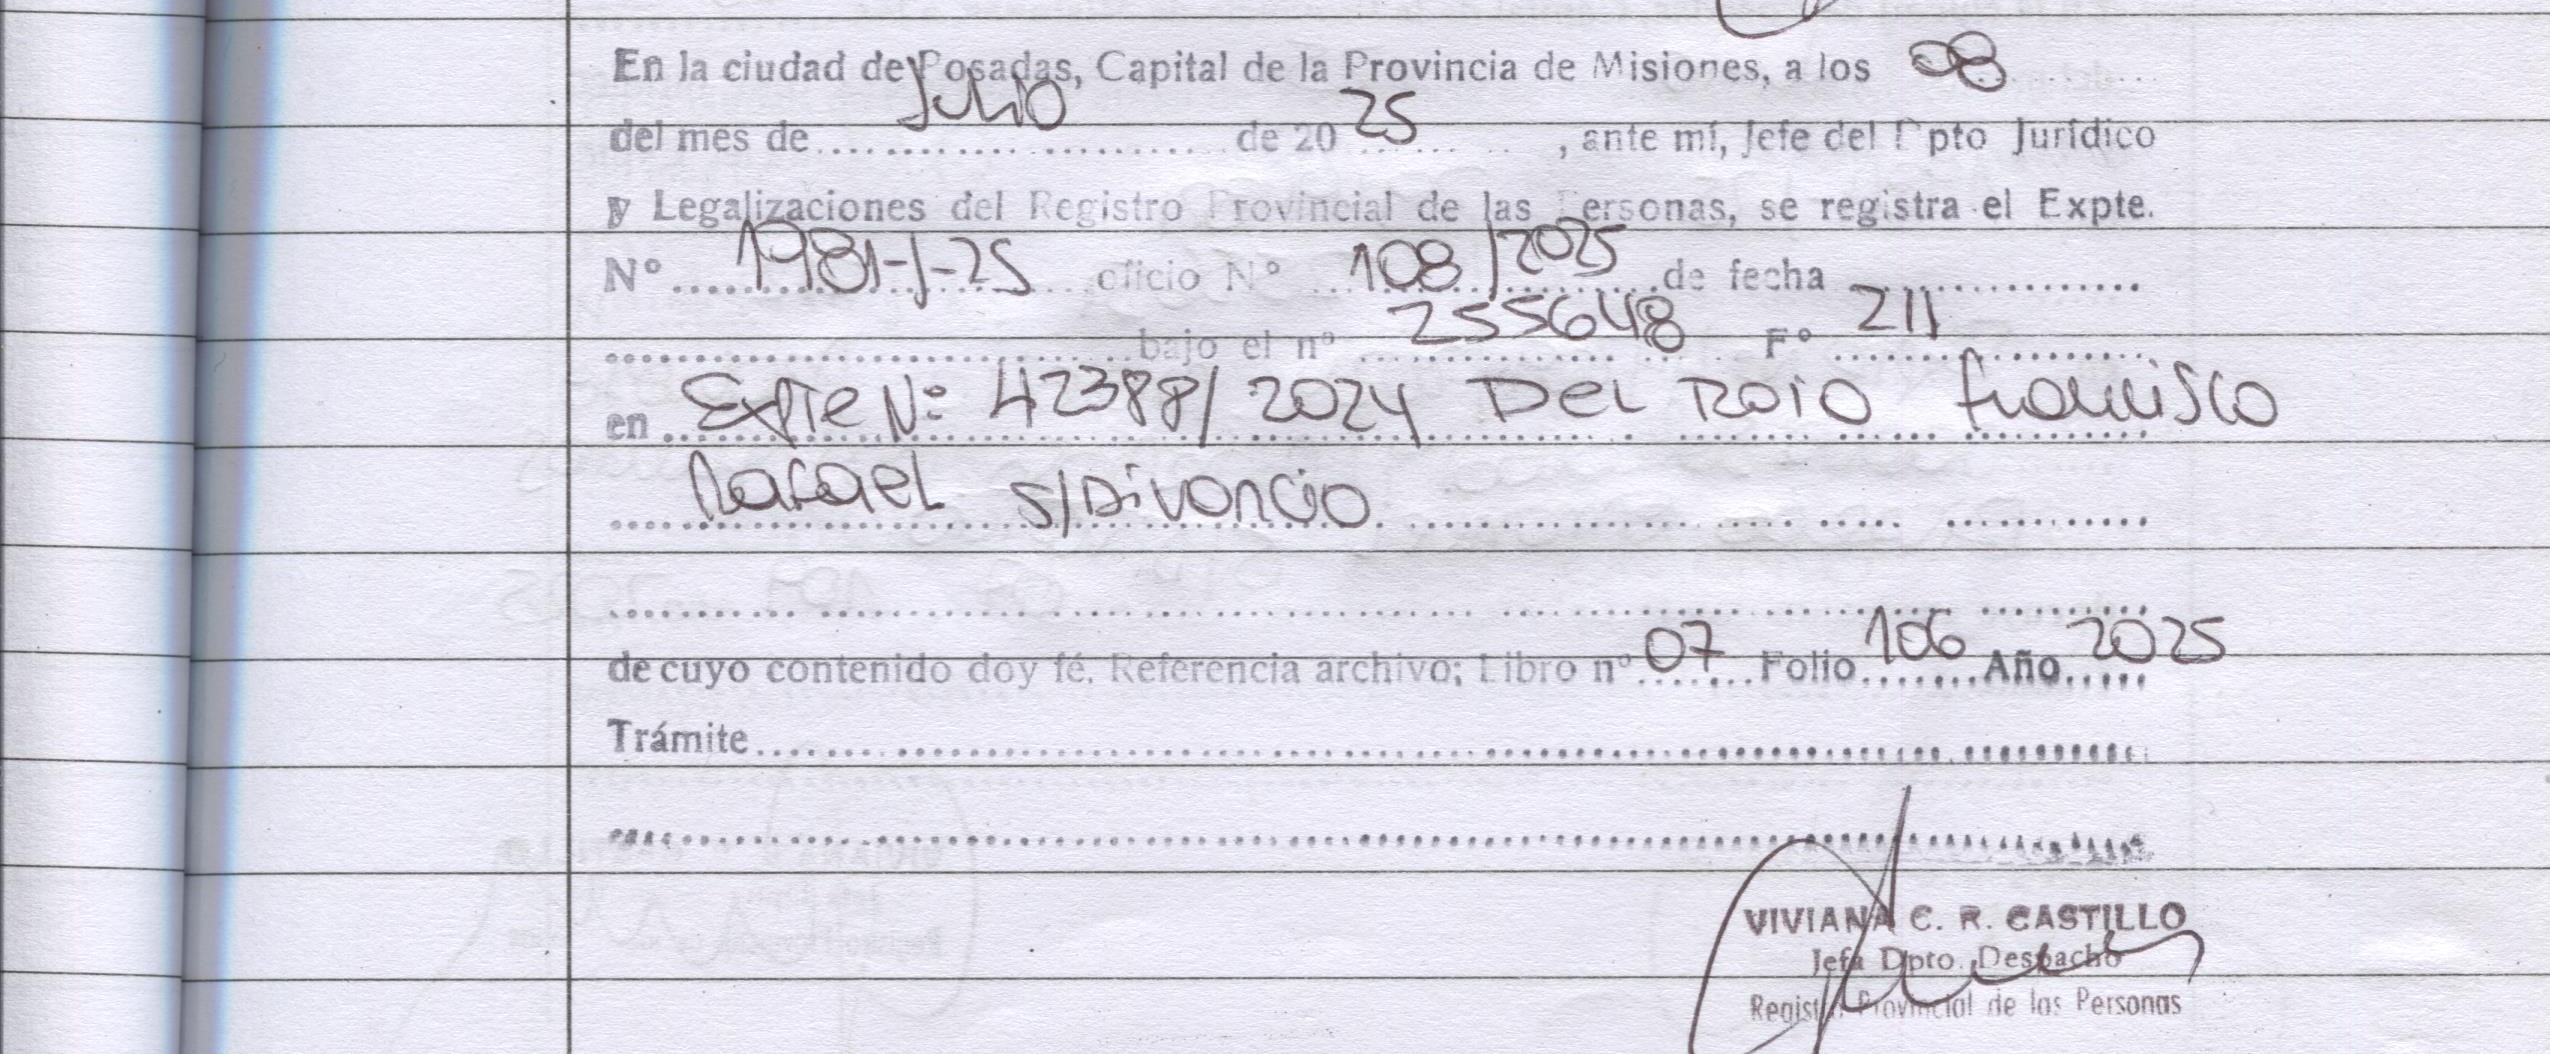 En la ciudad de Posadas, Capital de la Provincia de Misiones, a los 08
del mes de Julio de 20 25, ante mí, Jefe del Dpto Jurídico
y Legalizaciones del Registro Provincial de las Personas, se registra el Expte.
Nº 1981-J-25 oficio Nº 108/2025 de fecha
bajo el nº 255648 Fº 211
en Expte Nº 42388/2024 Del Roio Francisco
Rafael s/Divorcio
de cuyo contenido doy fé. Referencia archivo; Libro nº 07 Folio 106 Año 2025
Trámite
VIVIANA C. R. CASTILLO
Jefa Dpto. Despacho
Registro Provincial de las Personas